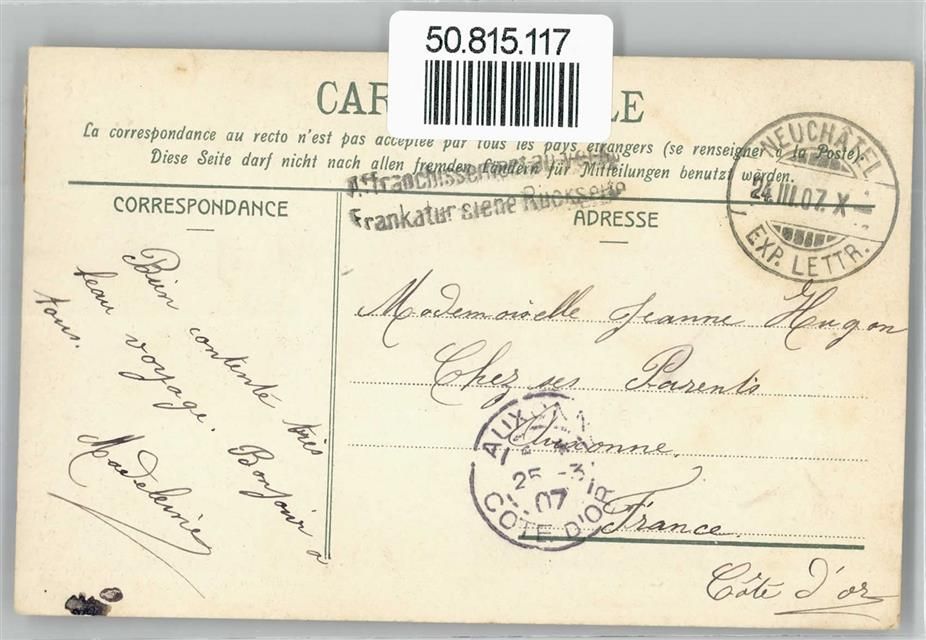 50.815.117
CAR LE
La correspondance au recto n'est pas acceptée par tous les pays étrangers (se renseigner à la Poste).
Diese Seite darf nicht nach allen fremden Ländern für Mitteilungen benutzt werden.
Affranchissement au verso
Frankatur siehe Rückseite
NEUCHÂTEL
24.III.07.X
EXP. LETTR.
CORRESPONDANCE
Bien contente très
beau voyage. Bonjour à
tous.
Madeleine
ADRESSE
Mademoiselle Jeanne Hugon
Chez ses Parents
Auxonne.
France.
Côte d'or
AUXONNE
25 -3
07
COTE D'OR